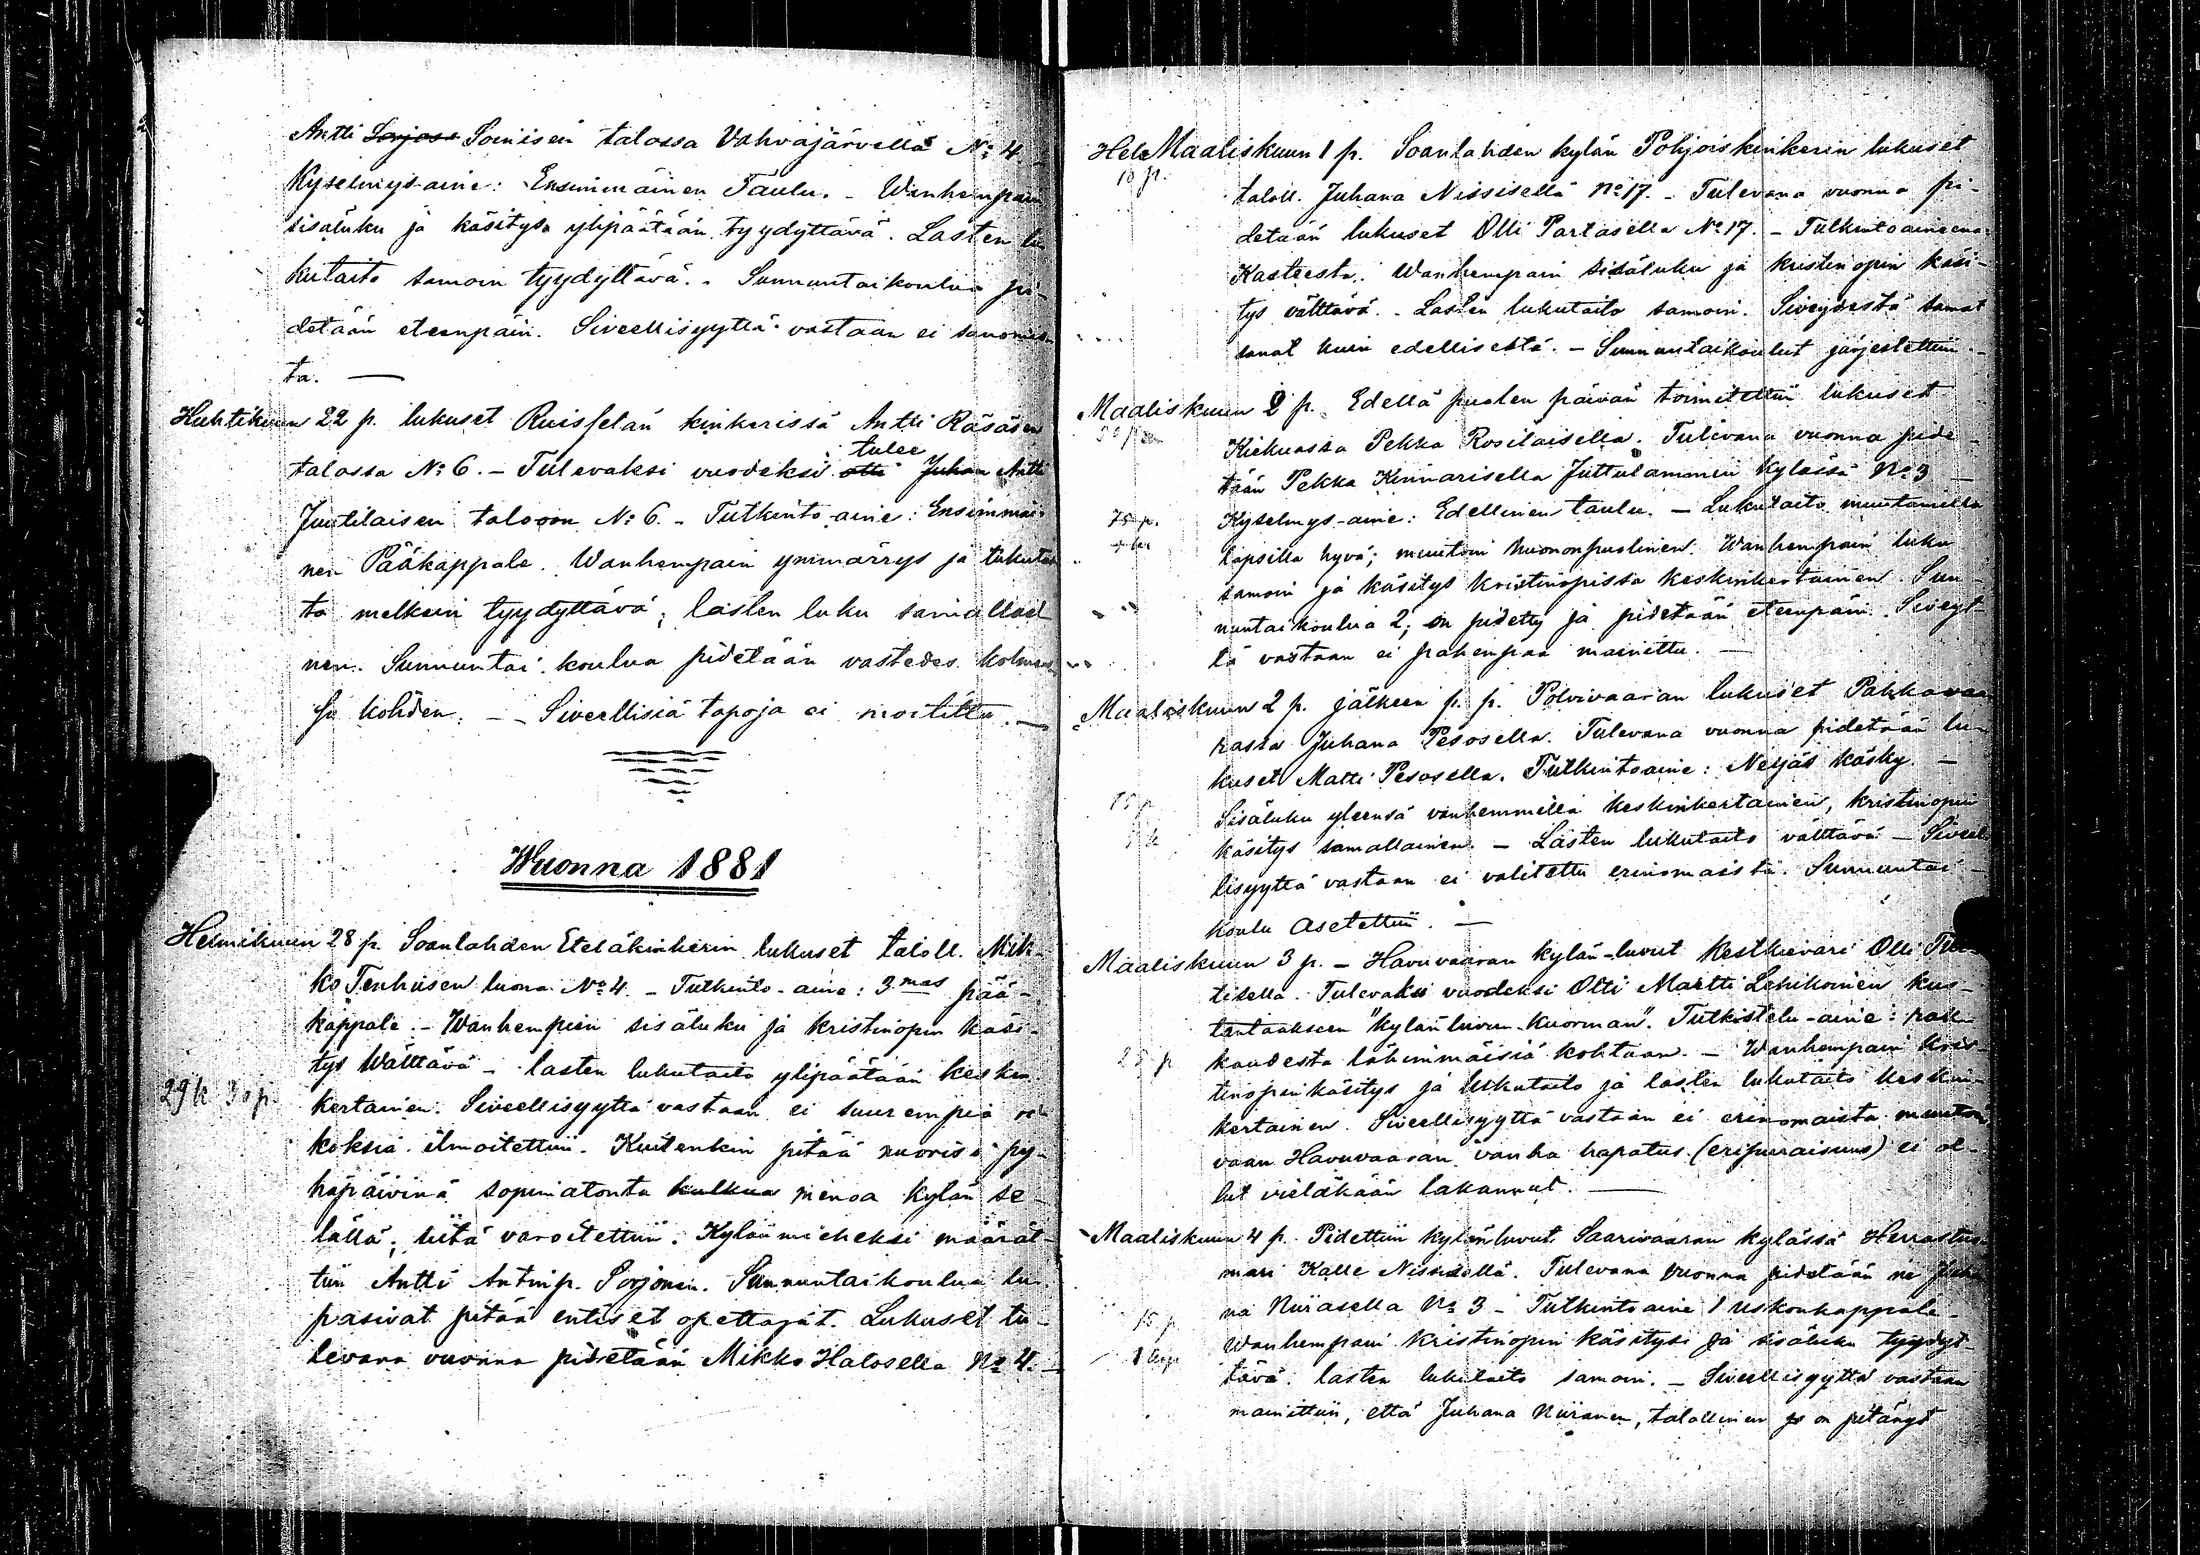 Antti Sorjosa Soinisen talossa Vahvajärvellä No 4 –
Kyselmys-aine: Ensimmäinen Taulu. – Wanhempain
sisäluku ja käsitys ylipäätään tyydyttävä. Lasten lu-
kutaito samoin tyydyttävä. – Sunnuntaikoulua pi-
detään eteenpäin. Siveellisyyttä vastaan ei sanomis-
ta. —
Huhtikuun 22 p. lukuset Ruisselän kinkerissä Antti Räsäsen
talossa No 6. – Tulevaksi vuodeksi otti tulee Juhan Antti
Juutilaisen taloon No 6. – Tutkinto-aine: Ensimmäi-
nen Pääkappale. Wanhempain ymmärrys ja lukutai-
to melkein tyydyttävä; lasten luku samallai-
nen. Sunnuntai koulua pidetään vastedes kolmes-
sa kohden. – – Siveellisiä tapoja ei moitittu. —
Wuonna 1881
Helmikuun 28 p. Soanlahden Eteläkinkerin lukuset taloll. Mik-
ko Tenhusen luona No 4. – Tutkinto-aine: 3mas pää-
kappale. – Wanhempien sisäluku ja kristinopin käsi-
tys Wälttävä – lasten lukutaito ylipäätään keskin-
29 k 30 p.
kertainen. Siveellisyyttä vastaan ei suurempia
koksia ilmoitettiin. Kuitenkin pitää nuoriso py-
häpäivinä sopimatonta kulkua menoa kylän se-
lällä; siitä varoitettiin. Kylänmieheksi määrät-
tiin Antti Antinp. Sorjonen. Sunnuntaikoulua lu-
pasivat pitää entiset opettajat. Lukuset tu-
levana vuonna pidetään Mikko Halosella No 4. –
Hel Maaliskuun 1 p. Soanlahden kylän Pohjoiskinkerin lukuset
10 p.
taloll. Juhana Nissisellä No 17. – Tulevana vuonna pi-
detään lukuset Olli Partasella No 17. – Tutkintoaineena
Kasteesta. Wanhempain sisäluku ja kristinopin käsi-
tys välttävä. – Lasten lukutaito samoin. Siveydestä samat
sanat kuin edellisestä. – Sunnuntaikoulut järjestettiin. –
Maaliskuun 2 p. Edellä puolen päivän toimitettiin lukuset
Kiekuasta Pekka Rosilaisella. Tulevana vuonna pide-
tään Pekka Kinnarisella Juttulammin kylässä No 3 –
75 p.
Kyselmys-aine: Edellinen taulu. – Lukutaito muutamilla
lapsilla hyvä; muutoin huononpuolinen. Wanhempain luku
samoin ja käsitys kristinopissa keskinkertainen. Sun-
nuntaikoulua 2; on pidetty ja pidetään eteenpäin. Siveyt-
tä vastaan ei pahempaa mainittu. —
Maaliskuun 2 p. jälkeen p. p. Polvivaaran lukuset Pakkavaa-
rasta Juhana Pesosella. Tulevana vuonna pidetään lu-
kuset Matti Pesosella. Tutkintoaine: Neljäs käsky. –
Sisäluku yleensä vanhemmilla keskinkertainen, kristinopin
käsitys samallainen. – Lasten lukutaito välttävä – Siveel-
lisyyttä vastaan ei valitettu erinomaista. Sunnuntai-
koulu asetettiin. —
Maaliskuun 3 p. – Havuvaaran kylän-luvut Kestkievari Olli
tisella. Tulevaksi vuodeksi Otti Martti Lehikoinen kus-
tantaakseen "kylänluvun-kuorman". Tutkistelu-aine: rak-
kaudesta lähimmäisiä kohtaan. – Wanhempain kris-
25 p
tinopinkäsitys ja lukutaito ja lasten lukutaito keskin-
kertainen. Siveellisyyttä vastaan ei erinomaista muuta
vaan Havuvaaran vanha hapatus (eripuraisuus) ei ol-
lut vieläkään lakannut. —
Maaliskuun 4 p. Pidettiin kylänluvut Saarivaaran kylässä Herrastus-
mari Kalle Nissisellä. Tulevana vuonna pidetään ne Juha-
na Niirasella No 3 – Tutkintoaine 1 uskonkappale –
15 p
Wanhempain kristinopin käsitys ja sisäluku tyydyt-
tävä. lasten lukutaito samoin. – Siveellisyyttä vastaan
mainittiin, että Juhana Niiranen, talollinen jo on pitänyt